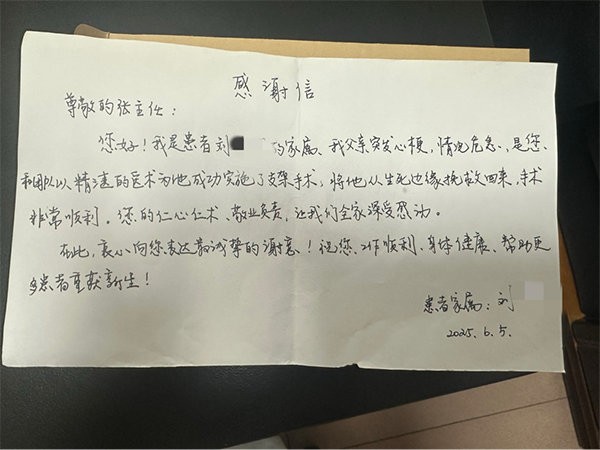 感谢信
尊敬的张主任：
您好！我是患者刘 的家属、我父亲突发心梗，情况危急、是您、
和团队以精湛的医术为他成功实施了支架手术，将他从生死边缘挽救回来，手术
非常顺利。您的仁心仁术、敬业负责，让我们全家深受感动。
在此，衷心向您表达最诚挚的谢意！祝您、工作顺利、身体健康、帮助更
多患者重获新生！
患者家属：刘
2025.6.5.